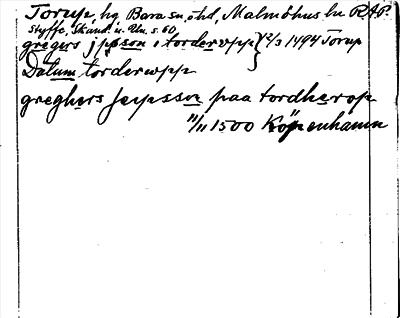 Torup, hg, Bara sn. o. hd, Malmöhus län RAP.
Styffe, Skand. u. Un. s. 60,
gregers jpsson i torderupp } 12/3 1494 Torup
Datum torderwpp
greghers Jeipsson paa tordherop
11/11 1500 Köpenhamn